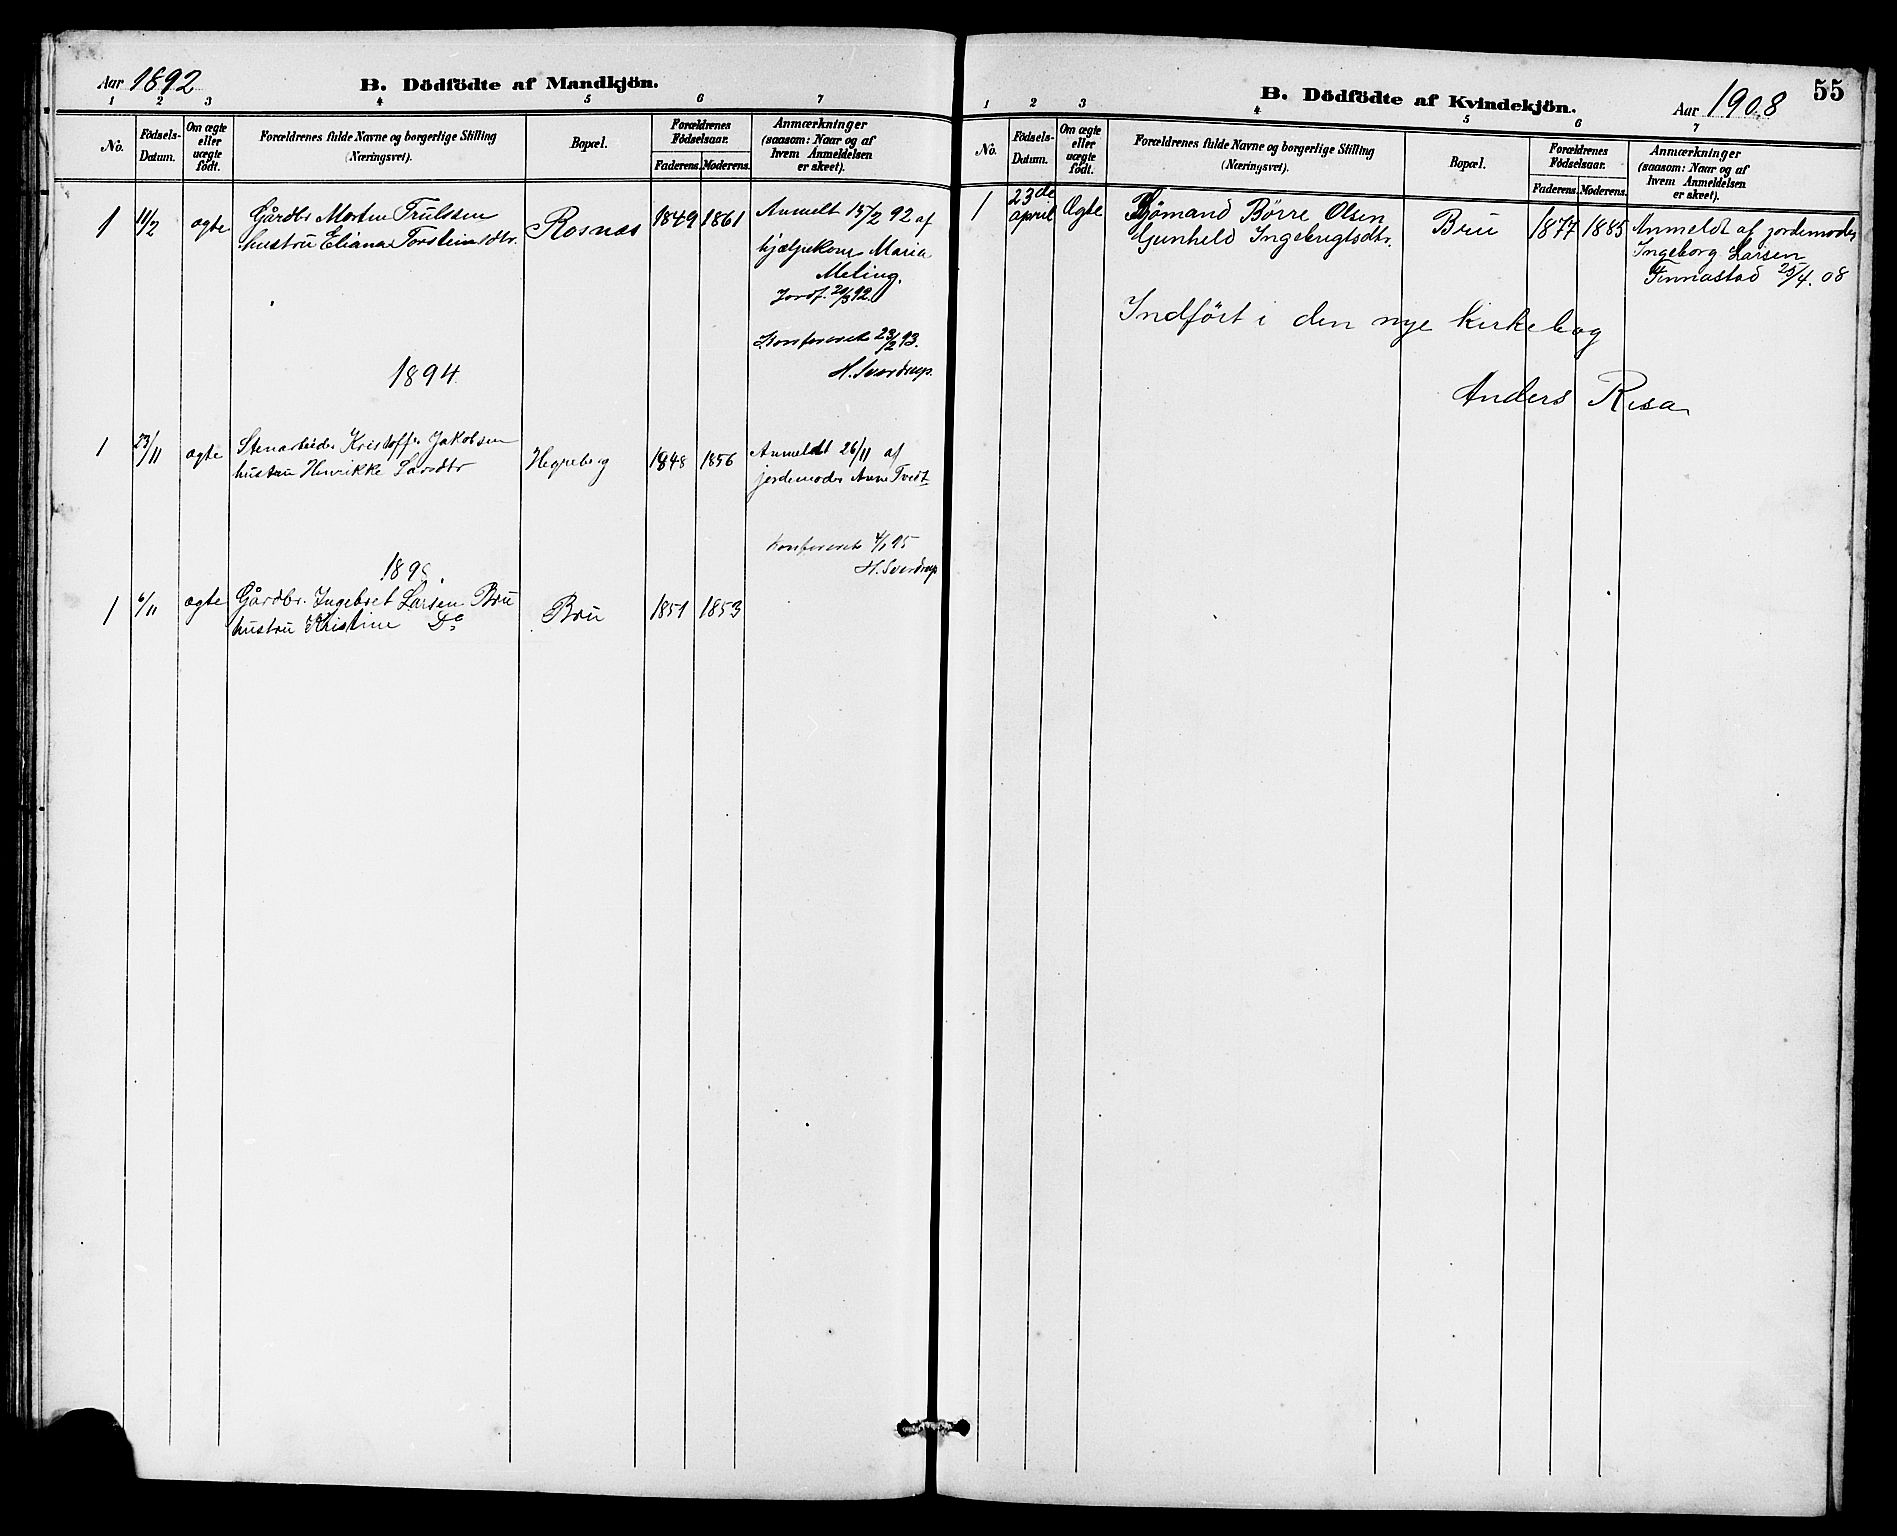 Aar 1892
B. Dödfödte af Mandkjön.
1 2 3 4 5 6 7
No.
Födsels-
Datum.
Om ægte
eller
uægte
födt.
Forældrenes fulde Navne og borgerlige Stilling
(Næringsvei).
Bopæl.
Forældrenes
Födselsaar.
Faderens. Moderens.
Anmærkninger
(saasom: Naar og af
hvem Anmeldelsen
er skeet).
1 11/2 ægte Gårdbr Morten Trulsen
hustru Eliana Torsteinsdtr.
Rosnæs 1849 1861
Anmelt 15/2 92 af
hjælpekone Maria
Meling.
Jordf. 20/3 92
Konfereret 23/2 93.
H. Sverdrup.
1894
1 23/11 ægte Stenarbeider Kristoffer Jakobsen
hustru Henrikke Larsdtr
Hegreberg 1848 1856
Anmeldt 26/11 af
jordemoder Anne Tvedt
Konfereret 4/1 95
H. Sverdrup
1 6/11 ægte Gårdbr. Ingebret Larsen Bru
hustru Kristine Do
Bru 1851 1853
B. Dödfödte af Kvindekjön.
Aar 1908
55
1 2 3 4 5 6 7
No.
Födsels-
Datum.
Om ægte
eller
uægte
födt.
Forældrenes fulde Navne og borgerlige Stilling
(Næringsvei).
Bopæl.
Forældrenes
Födselsaar.
Faderens. Moderens.
Anmærkninger
(saasom: Naar og af
hvem Anmeldelsen
er skeet).
1 23de
april Ægte Sjømand Børre Olsen
Gunheld Ingebrigtsdtr.
Bru 1877 1885
Anmeldt af jordemoder
Ingeborg Larsen
Finnastad 25/4. 08
Indført i den nye kirkebog
Anders Risa